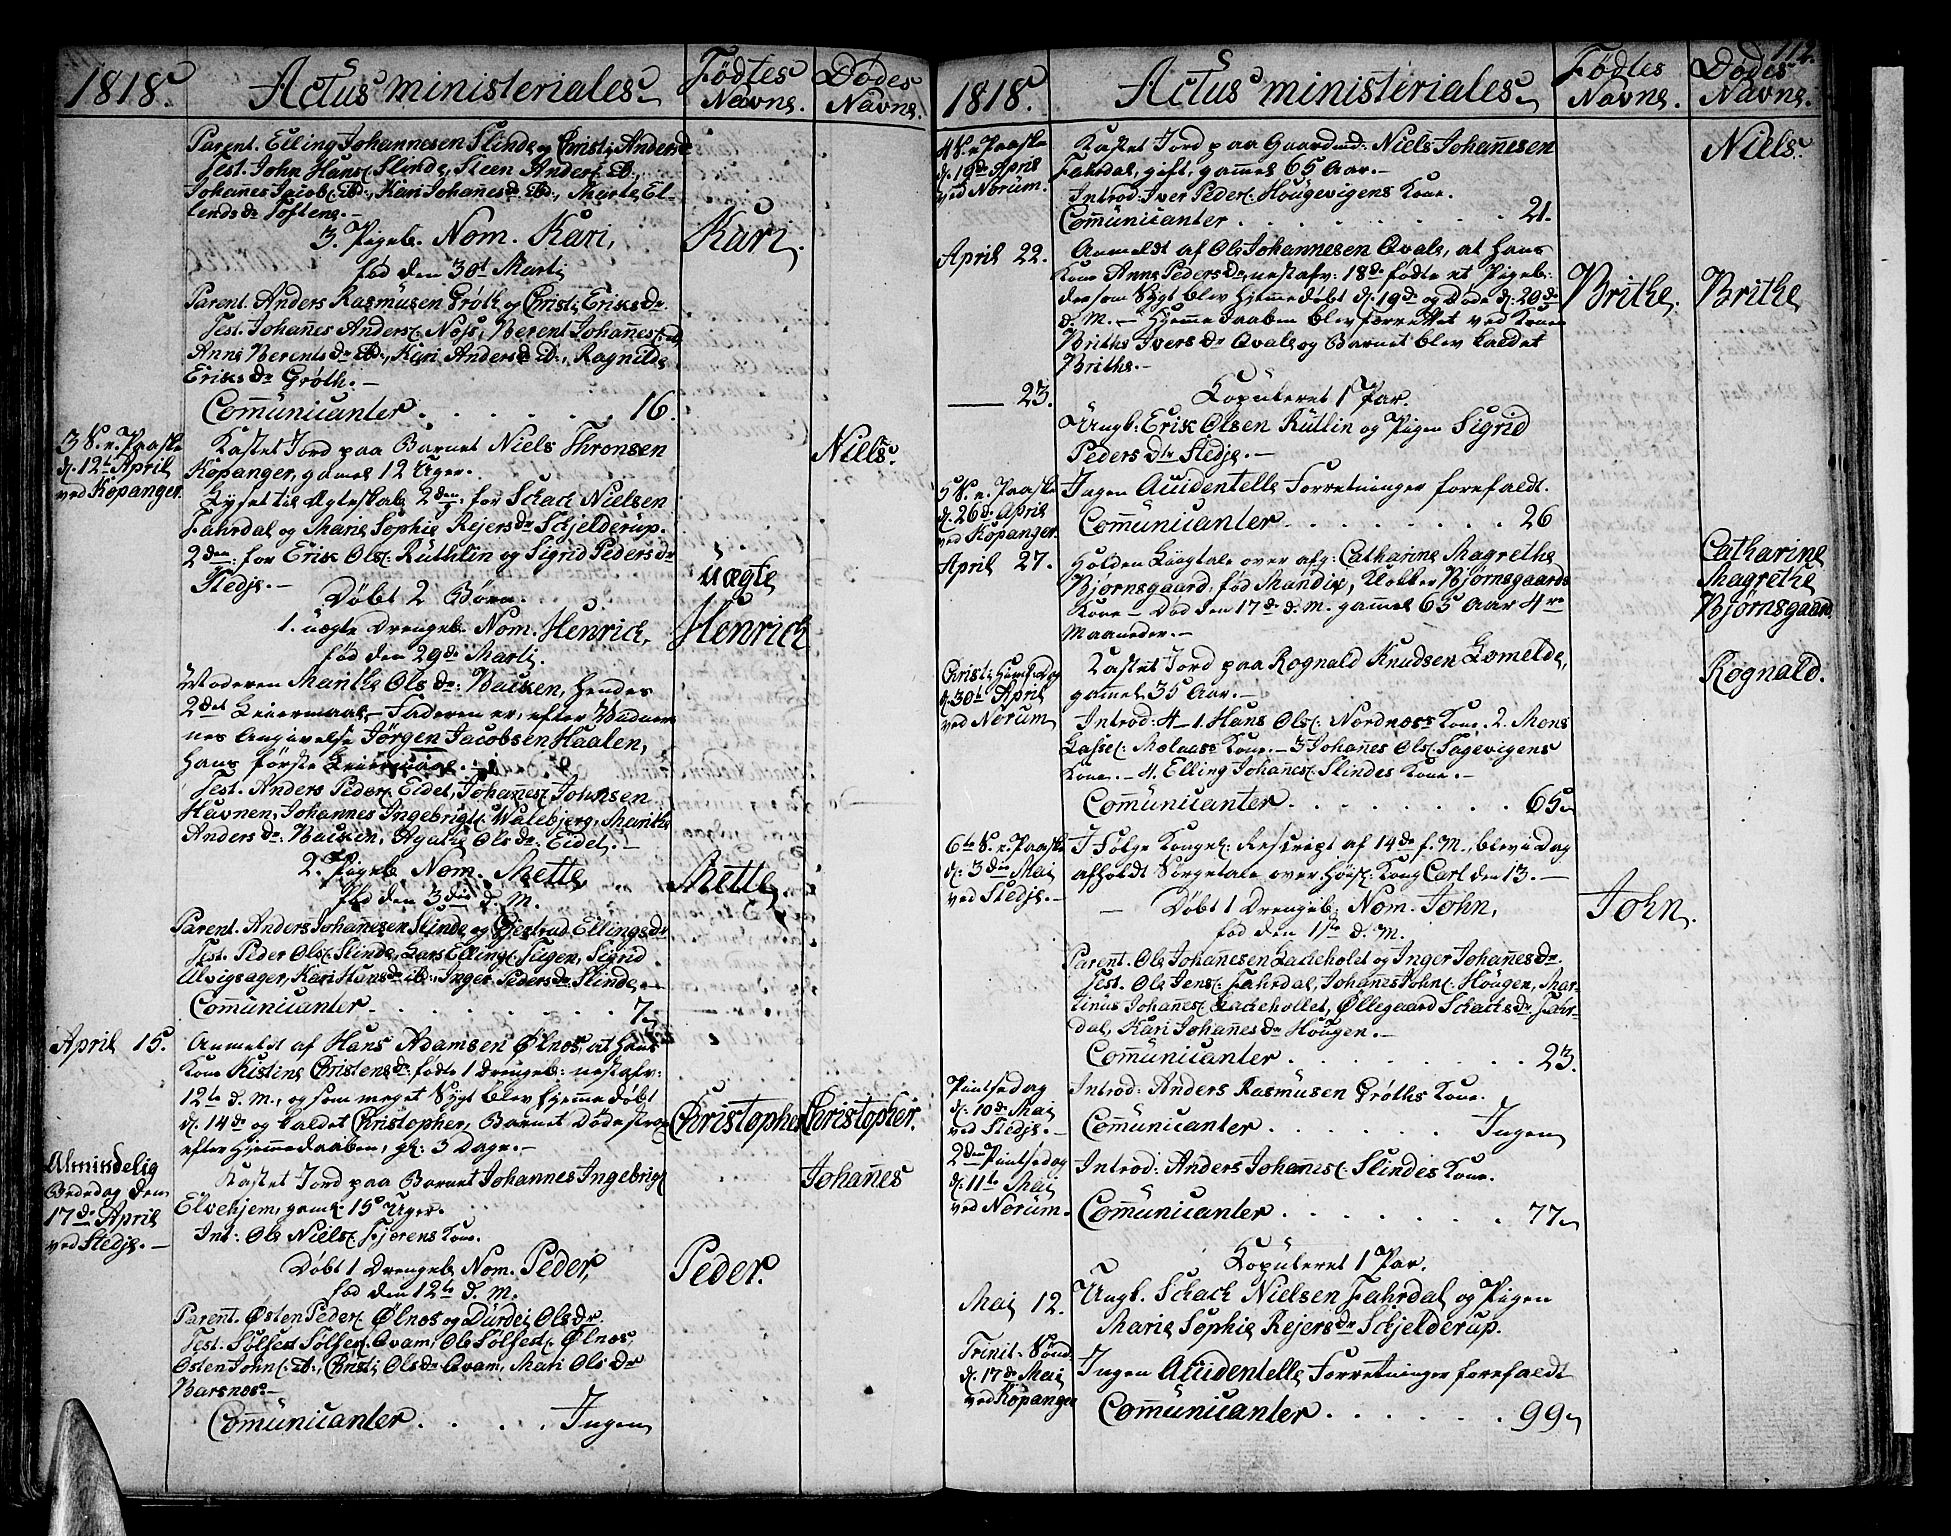 1818.
Actus ministeriales.
Fødtes Navne.
Dødes Navne.
Parent. Elling Johannesen Slinde og Christi Andersd
Test. John Hans: Slinde, Steen Anders: ib.,
Johanes Jacobs: ib., Kari Johanesd. ib., Marte El-
lends dr Toftene.-
3. Pigeb. Nom. Kari,
Kari.
fød den 30t Marti
Parent. Anders Rasmusen Grøth og Christi Eriks dr
Test. Johanes Anders: Nøss, Berent Johanes: ib,
Anne Berentsdr ib., Kari Andersd ib., Ragnilde
Eriks dr Grøth.-
Communicanter . . . . . . 16.
3 S. e. Paaske
d. 12te April
ved Kopanger.
Kastet Jord paa Barnet Niels Thronsen
Niels.
Kopanger, gamel 12 Uger.
Lyset til Ægteskab 2den: for Schack Nielsen
Fahrdal og Marie Sophie Rejers dr Schjelderup.
2den: for Erik Ols: Rüthlin og Sigrid Peders dr
Stedje.-
Døbt 2 Børn.
1. uægte Drengeb. Nom. Henrich,
uægte
Henrich
fød den 29de Marti.
Moderen Marithe Ols dr: Backen, hendes
2det Leiermaal.- Faderen er, efter Moder-
nes Angivelse Jørgen Jacobsen Haalen,
hans første Leiermaal.
Test. Anders Peders: Eidet, Johanes: Johnsen
Havnen, Johannes Ingebrigts: Walebjerg, Marithe
Anders dr: Backen, Agathe Ols dr: Eidet.-
2. Pigeb. Nom. Mette,
Mette,
fød den 3die d. M.
Parent. Anders Johannesen Slinde og Gjertrud Ellings dr
Test. Peder Ols: Slinde, Lars Elling: Teigen, Sigrid
Ulvigsager, Kari Hansdr ib., Inger Peders dr Slinde,-
Communicanter . . . . . . 7,
April 15.
Anmeldt af Hans Adamsen Ølnos, at hans
Kone Kistine Christensdr: fødte 1 Drengeb: nestafv:
12te d. M., og som meget Sygt blev hjemmedøbt
d. 14de og kaldet Christopher, Barnet Døde strax
Christopher
Christopher.
efter Hjemmedaaben, gl: 3 Dage.-
Almindelig
Bededag den
17de April
ved Stedje.-
Kastet Jord paa Barnet Johannes Ingebrig:
Johanes
Elvehjem, gaml: 15 Uger.
Int: Ole Niels: Fjørens Kone.
Døbt 1 Drengeb. Nom. Peder,
Peder.
fød den 12te d. M.
Parent. Østen Peder: Ølnos og Durdei Ols dr.
Test. Sølfest Sølfes: Qvam, Ole Sølfest: Ølnos
Østen John: ib., Christi Ols dr Qvam, Mari Ols dr
Barsnes.-
Communicanter . . . . . Ingen,
1818.
Actus ministeriales.
Fødtes Navne.
Dødes Navne.
112.
4 S. e. Paaske
d. 19de April
ved Norum.
Kastet Jord paa Gaardmd: Niels Johannesen
Niels.
Fahrdal, gift, gammel 65 Aar.-
Introd: Iver Peders: Hougevigens Kone.
Communicanter . . . . . . 21.
April 22.
Anmeldt af Ole Johannesen Qvale, at hans
Kone Anne Peders dr, nestafv: 18de fødte et Pigeb:
der som Sygt blev hjemmedøbt d. 19de og Døde d. 20de
Brithe.
Brithe
d. M.- Hjemmedaaben blev forrettet ved Konen
Brithe Ivers dr Qvale og Barnet blev kaldet
Brithe.-
—— 23.
Kopuleret 1 Par.
Ungk: Erik Olsen Rütlin og Pigen Sigrid
Peders dtr Stedje.-
5 S. e. Paaske
d. 26de April
ved Kopanger.
Ingen Accidentelle Forretninger forefaldt.
Communicanter . . . . . . 26
April 27.
Holden Liigtale over afg: Catharine Magrethe
Bjørnsgaard, fød Mandix, Klokker Bjørnsgaards
Kone - Død den 17de d. M. gammel 65 Aar 4re
Maaneder.-
Catharine
Magrethe
Bjørnsgaard
Christi Himf: Dag
d. 30te April
ved Norum
Kastet Jord paa Rognald Knudsen Lomelde,
Rognald.
gamel 35 Aar.-
Introd: 4- 1. Hans Ols: Nordnæs Kone. 2. Mons
Lasse: Kone.- 3 Johanes Ols: Fagevigens
Kone.- 4. Elling Johanes: Slindes Kone.-
Communicanter . . . . . . 65,
6te S. e. Paaske
d. 3die Mai
ved Stedje.-
I Følge Kongel: Rescript af 14de f. M., blev i Dag
afholdt Sørgetale over Høis: Kong Carl den 13.-
Døbt 1 Drengeb. Nom. John,
John.
fød den 1ste d. M.
Parent. Ole Johannesen Lacheholet og Inger Johannes dr.
Test. Ole Jens: Fahrdal, Johanes John: Hougen, Mar-
tinus Johanes: Lackehollet, Øllegaard Schacks dr Fahr-
dal, Kari Johanes dr Hougen.-
Communicanter . . . . . . 23.
Pintsedag
d. 10de Mai
ved Stedje.-
Introd: Anders Rasmusen Grøths Kone.
Communicanter . . . . . . Ingen
2den Pintsedag
d. 11te Mai
ved Norum.
Introd: Anders Johanes: Slindes Kone.
Communicanter . . . . . . 77,
Kopuleret 1 Par.
Mai 12.
Ungk. Schack Nielsen Fahrdal og Pigen
Marie Sophie Rejers dr Schjelderup.
Trinit. Sønd.
d. 17de Mai
ved Kopanger
Ingen Accidentelle Forretninger forefaldt
Communicanter . . . . . . 99,